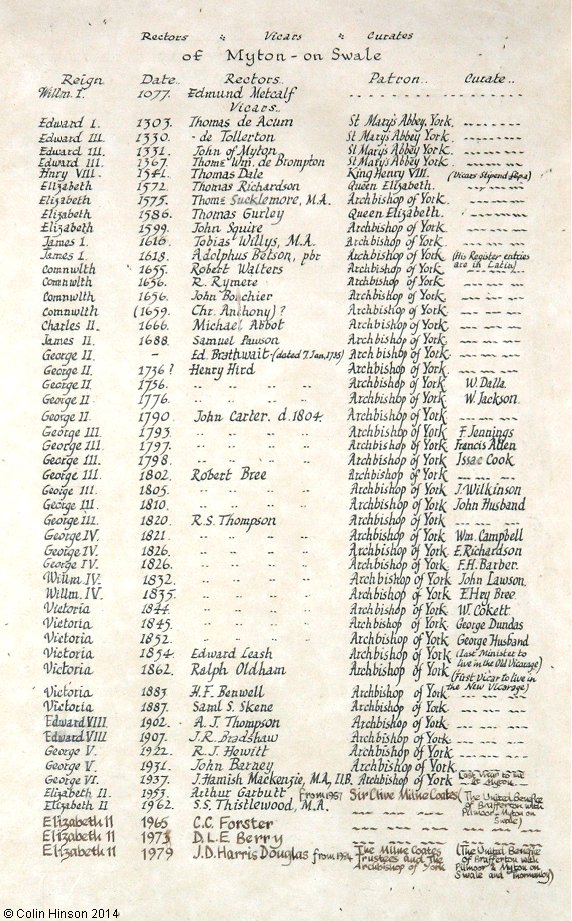 Rectors : Vicars : Curates
of Myton-on Swale
Reign Date.. Rectors.. Patron.. Curate..
Willm. I. 1077. Edmund Metcalf
Vicars..
Edward I. 1303. Thomas de Acum St Mary's Abbey, York.
Edward III. 1330. - de Tollerton St Mary's Abbey, York.
Edward III. 1331. John of Myton St Mary's Abbey, York.
Edward III. 1367. Thoms Wm. de Brompton St Mary's Abbey, York.
Hnry VIII. 1541. Thomas Dale King Henry VIII. (Vicars Stipend £6p.a)
Elizbeth 1572. Thomas Richardson Queen Elizabeth.
Elizbeth 1575. Thoms Sucklemore, M.A. Archbishop of York.
Elizbeth 1586. Thomas Gurley Queen Elizabeth.
Elizbeth 1599. John Squire Archbishop of York.
James I. 1616. Tobias Willys, M.A. Archbishop of York
James I. 1618. Adolphus Betson, pbr Archbishop of York (His Register entries
Comnwlth 1655. Robert Walters Archbishop of York are in Latin)
Comnwlth 1656. R. Rymere Archbishop of York
Comnwlth 1656. John Bouchier Archbishop of York
Comnwlth (1659. Chr. Anthony) ? Archbishop of York
Charles II. 1666. Michael Abbot Archbishop of York
James II. 1688. Samuel Pawson Archbishop of York
George II. - Ed. Brathwait-(dated 7.Jan,1735) Archbishop of York
George II. 1736 ? Henry Hird Archbishop of York
George II. 1756. .. .. .. Archbishop of York W. Dalla.
George II. 1776. .. .. .. Archbishop of York W. Jackson.
George II. 1790. John Carter. d. 1804. Archbishop of York
George III. 1793. .. .. .. Archbishop of York F. Jennings
George III. 1797. .. .. .. Archbishop of York Francis Allen
George III. 1798. .. .. .. Archbishop of York Issac Cook
George III. 1802. Robert Bree Archbishop of York
George III. 1805. .. .. .. Archbishop of York J. Wilkinson
George III. 1810. .. .. .. Archbishop of York John Husband
George III. 1820. R.S. Thompson Archbishop of York
George IV. 1821. .. .. .. Archbishop of York Wm. Campbell
George IV. 1826. .. .. .. Archbishop of York E. Richardson
George IV. 1826. .. .. .. Archbishop of York F.H. Barber.
Willm. IV. 1832. .. .. .. Archbishop of York John Lawson.
Willm. IV. 1835. .. .. .. Archbishop of York E. Hey Bree.
Victoria 1844. .. .. .. Archbishop of York W. Cokett
Victoria 1845. .. .. .. Archbishop of York George Dundas
Victoria 1852. .. .. .. Archbishop of York George Husband
Victoria 1854. Edward Leash Archbishop of York (Last Minister to
live in the Old Vicarage)
Victoria 1862. Ralph Oldham Archbishop of York (First Vicar to live in
the New Vicarage)
Victoria 1883 H.F. Benwell Archbishop of York
Victoria 1887. Saml S. Skene Archbishop of York
Edward VIII 1902. A. J. Thompson Archbishop of York
Edward VIII 1907. J.R. Bradshaw Archbishop of York
George V. 1922. R. J. Hewitt Archbishop of York
George V. 1931. John Barney Archbishop of York
George VI. 1937. J. Hamish Mackenzie, M.A, ll.B. Archbishop of York (Last Vicar to live
at Myton.
Elizabeth II. 1953. Arthur Garbutt from 1957 Sir Clive Milne Coates (The United Benefice
Elizabeth II. 1962. S.S. Thistlewood, M.A. of Brafferton with
Pilmoor - Myton on
Swale)
Elizabeth II 1965 C.C. Forster
Elizabeth II 1973 D.L.E Berry
Elizabeth II 1979 J.D. Harris Douglas from The Milne Coates (The United Benefice
Trustees and The of Brafferton with
Archbishop of York Pilmoor & Myton on
Swale and Thormanby)
© Colin Hinson 2014